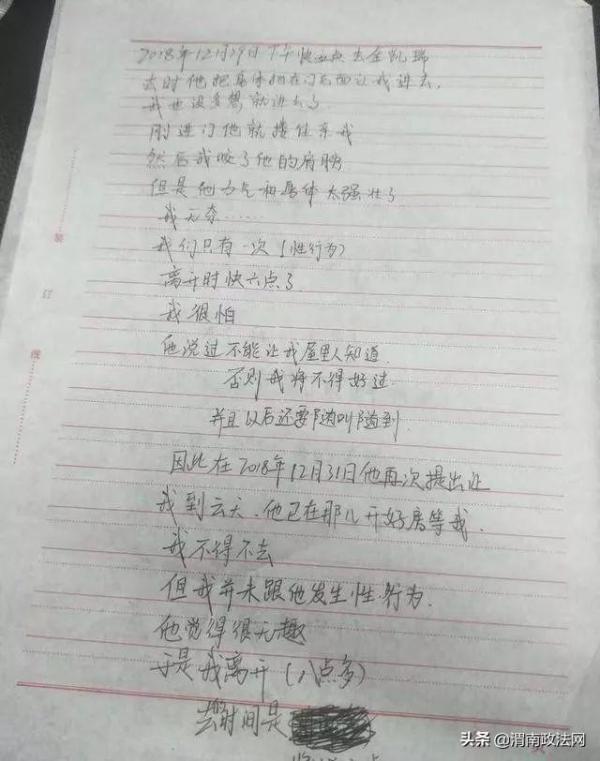 2018年12月29日下午快五点去金凯瑞
去时他把身体掩在门后面让我进去,
我也没多想就进去了
刚进门他就搂住亲我
然后我咬了他的肩膀
但是他力气和身体太强壮了
我无奈……
我们只有一次(性行为)
离开时快六点了
我很怕
他说过不能让我屋里人知道.
否则我将不得好过.
并且以后还要随叫随到.
因此在2018年12月31日他再次提出让
我到云天、他已在那儿开好房等我.
我不得不去
但我并未跟他发生性行为.
他觉得很无趣
于是我离开(八点多)
去时间是
装
订
线
页
头条 @渭南政法网